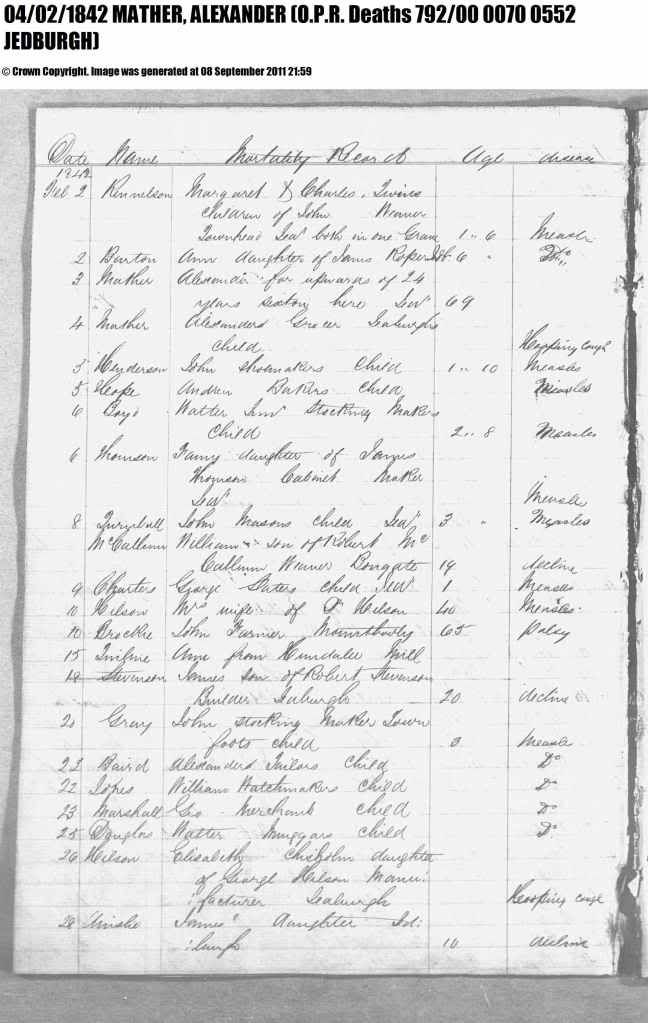 04/02/1842 MATHER, ALEXANDER (O.P.R. Deaths 792/00 0070 0552
JEDBURGH)
© Crown Copyright. Image was generated at 08 September 2011 21:59
Date Name Mortality Record Age disease
1842
Feb 2 Rennelson Margaret & Charles. Twins
children of John Weaver
Townhead Jedr both in one Grave 1 " 6 Measle
2 Burton Ann daughter of James Roper 6 " Do
3 Mather Alexander for upwards of 24
years sexton here Jedr 69
4 Mather Alexanders Grocer Jedburghs
child Hooping cough
5 Henderson John Shoemakers Child 1 " 10 Measles
5 Hope Andrew Bakers Child Measles
6 Boyd Walter Junr Stocking Makers
Child 2 " 8 Measles
6 Thomson Fanny daughter of James
Thomson Cabinet Maker
Jedr Measle
8 Turnbull John Masons child Jedr 3 " Measles
McCallum William son of Robert Mc
Callum Weaver Bongate 19 decline
9 Charters George Slaters child Jedr 1 Measles
10 Hilson Mrs wife of Hilson 40 Measles
10 Brockie John Farmer 65 palsy
15 Anne from Hundalee Mill
19 Stevenson James son of Robert Stevenson
Builder Jedburgh 20 decline
20 Gray John Stocking Maker Town
foots child 3 Measle
21 Baird Alexanders Tailors Child Do
22 William Watchmakers Child Do
23 Marshall Geo Merchant child Do
25 Douglas Walter Muggars Child Do
26 Hilson Elisabeth Chisholm daughter
of George Hilson Manu:
:facturer Jedburgh Hooping cough
28 Ainslie James' daughter Jed:
:burgh 10 decline